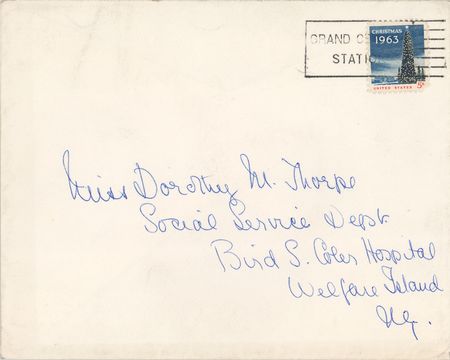 GRAND CE
STATIO
CHRISTMAS
1963
UNITED STATES 5¢
Miss Dorothy M. Thorpe
Social Service Dept.
Bird S. Coler Hospital
Welfare Island
N.Y.